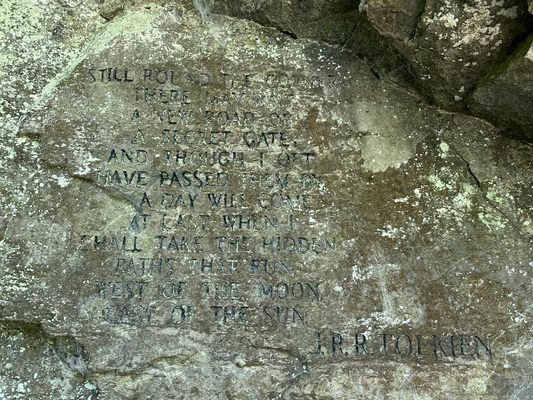 STILL ROUND THE CORNER
THERE MAY WAIT
A NEW ROAD OR
A SECRET GATE,
AND THOUGH I OFT
HAVE PASSED THEM BY
A DAY WILL COME
AT LAST WHEN I
SHALL TAKE THE HIDDEN
PATHS THAT RUN
WEST OF THE MOON
EAST OF THE SUN
J.R.R. TOLKIEN